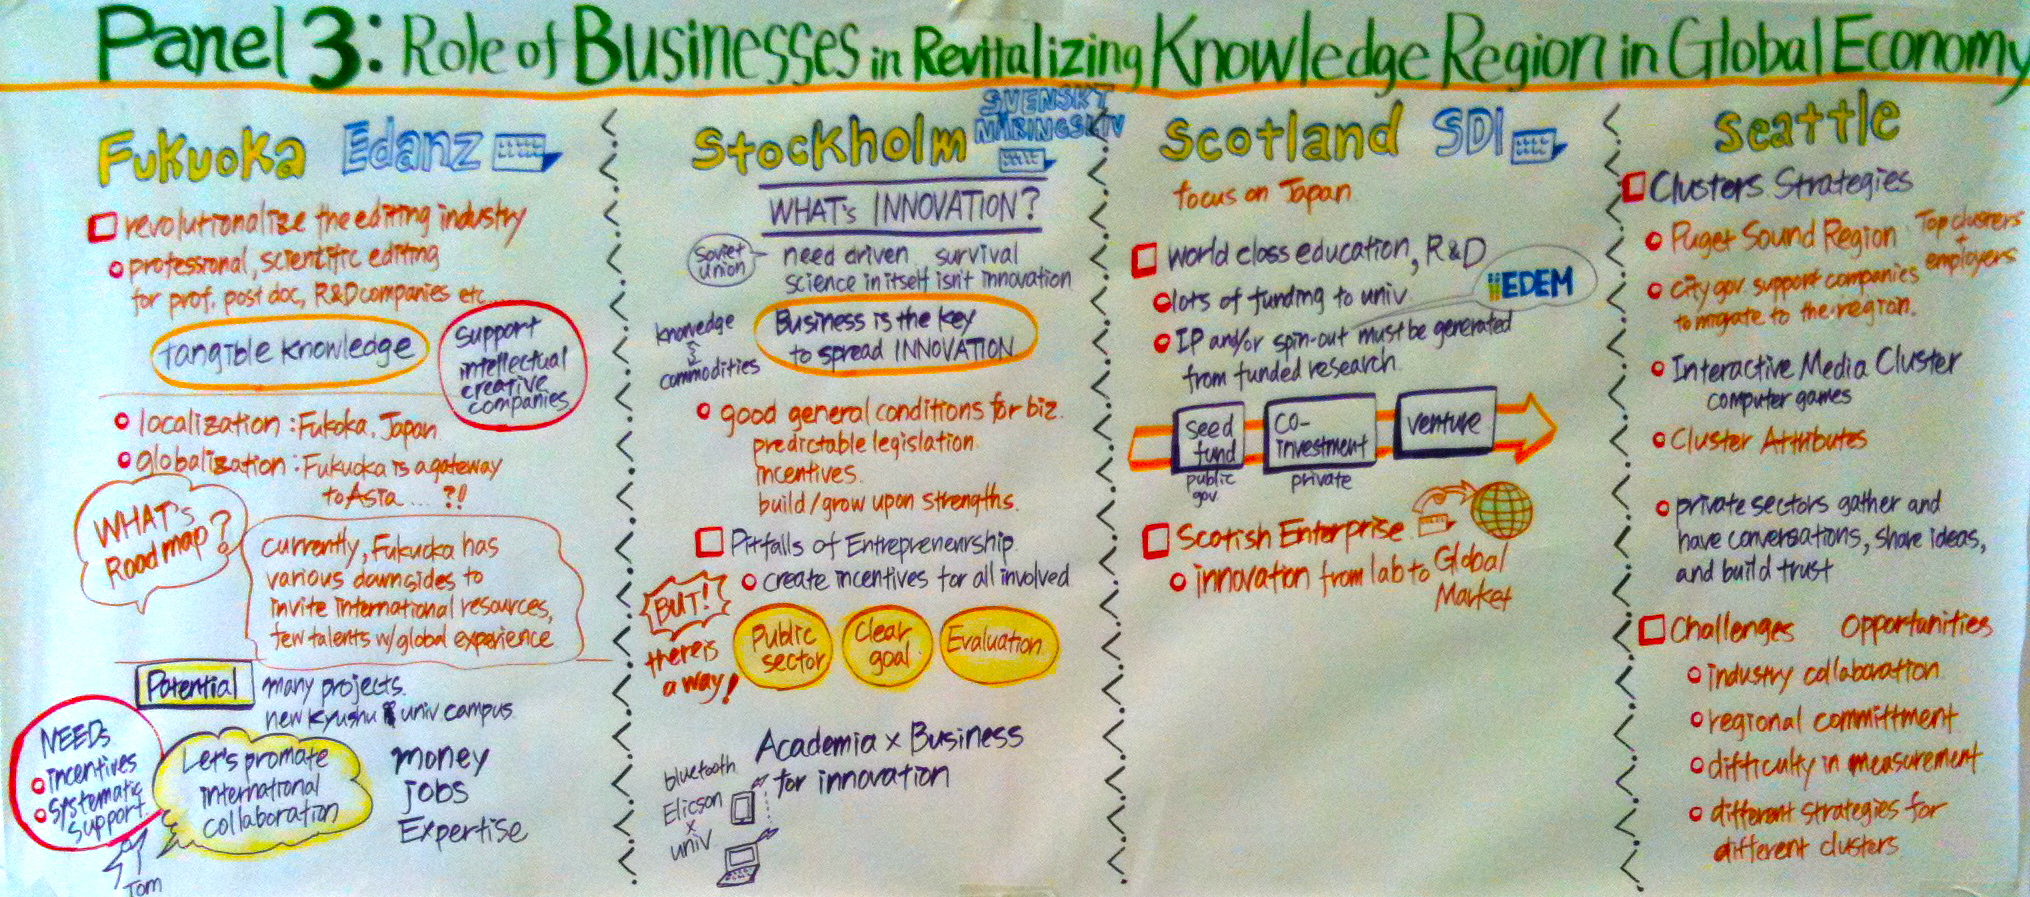 Panel 3: Role of Businesses in Revitalizing Knowledge Region in Global Economy
Fukuoka Edanz
revolutionalize the editing industry
professional, scientific editing
for prof. post doc, R&D companies etc...
tangible knowledge
support
intellectual
creative
companies
localization : Fukoka, Japan
globalization : Fukuoka is a gateway
to Asia ... ?!
WHAT's
Road map?
currently, Fukuoka has
various downsides to
invite international resources,
few talents w/global experience
Potential
many projects.
new kyushu univ campus
NEEDs
incentives
systematic
support.
Tom
Let's promote
international
collaboration
money
jobs
Expertise
Stockholm SVENSKT
NÄRINGSLIV
WHAT's INNOVATION?
Soviet
union
need driven survival
science in itself isn't innovation
knowledge
commodities
Business is the key
to spread INNOVATION
good general conditions for biz.
predictable legislation
incentives.
build/grow upon strengths.
Pitfalls of Entreprenenrship
create incentives for all involved
BUT!
there is
a way!
Public
sector
Clear
goal
Evaluation
Academia x Business
for innovation
bluetooth
Elicson
x
univ
Scotland SDI
focus on Japan
world class education, R&D
EDEM
lots of funding to univ.
IP and/or spin-out must be generated
from funded research.
seed
fund
public
gov.
co-
investment
private
venture
Scotish Enterprise
innovation from lab to Global
Market
Seattle
Clusters Strategies
Puget Sound Region Top clusters
+
employers
city gov. support companies
to migrate to the region.
Interactive Media Cluster
computer games
Cluster Attributes
private sectors gather and
have conversations, share ideas,
and build trust
Challenges Opportunities
industry collaboration
regional committment
difficulty in measurement
different strategies for
different clusters